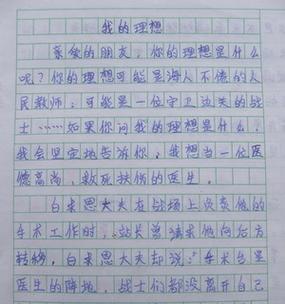 我的理想
亲爱的朋友，你的理想是什么
呢？你的理想可能是诲人不倦的人
民教师；可能是一位守卫边关的战
士……如果你问我的理想是什么，
我会坚定地告诉你，我想当一位医
德高尚、救死扶伤的医生。
白求恩大夫在战场上负责他的
手术工作时，站长曾请求他向后方
转移，白求恩大夫却说“手术台是
医生的阵地，战士们都没离开自己